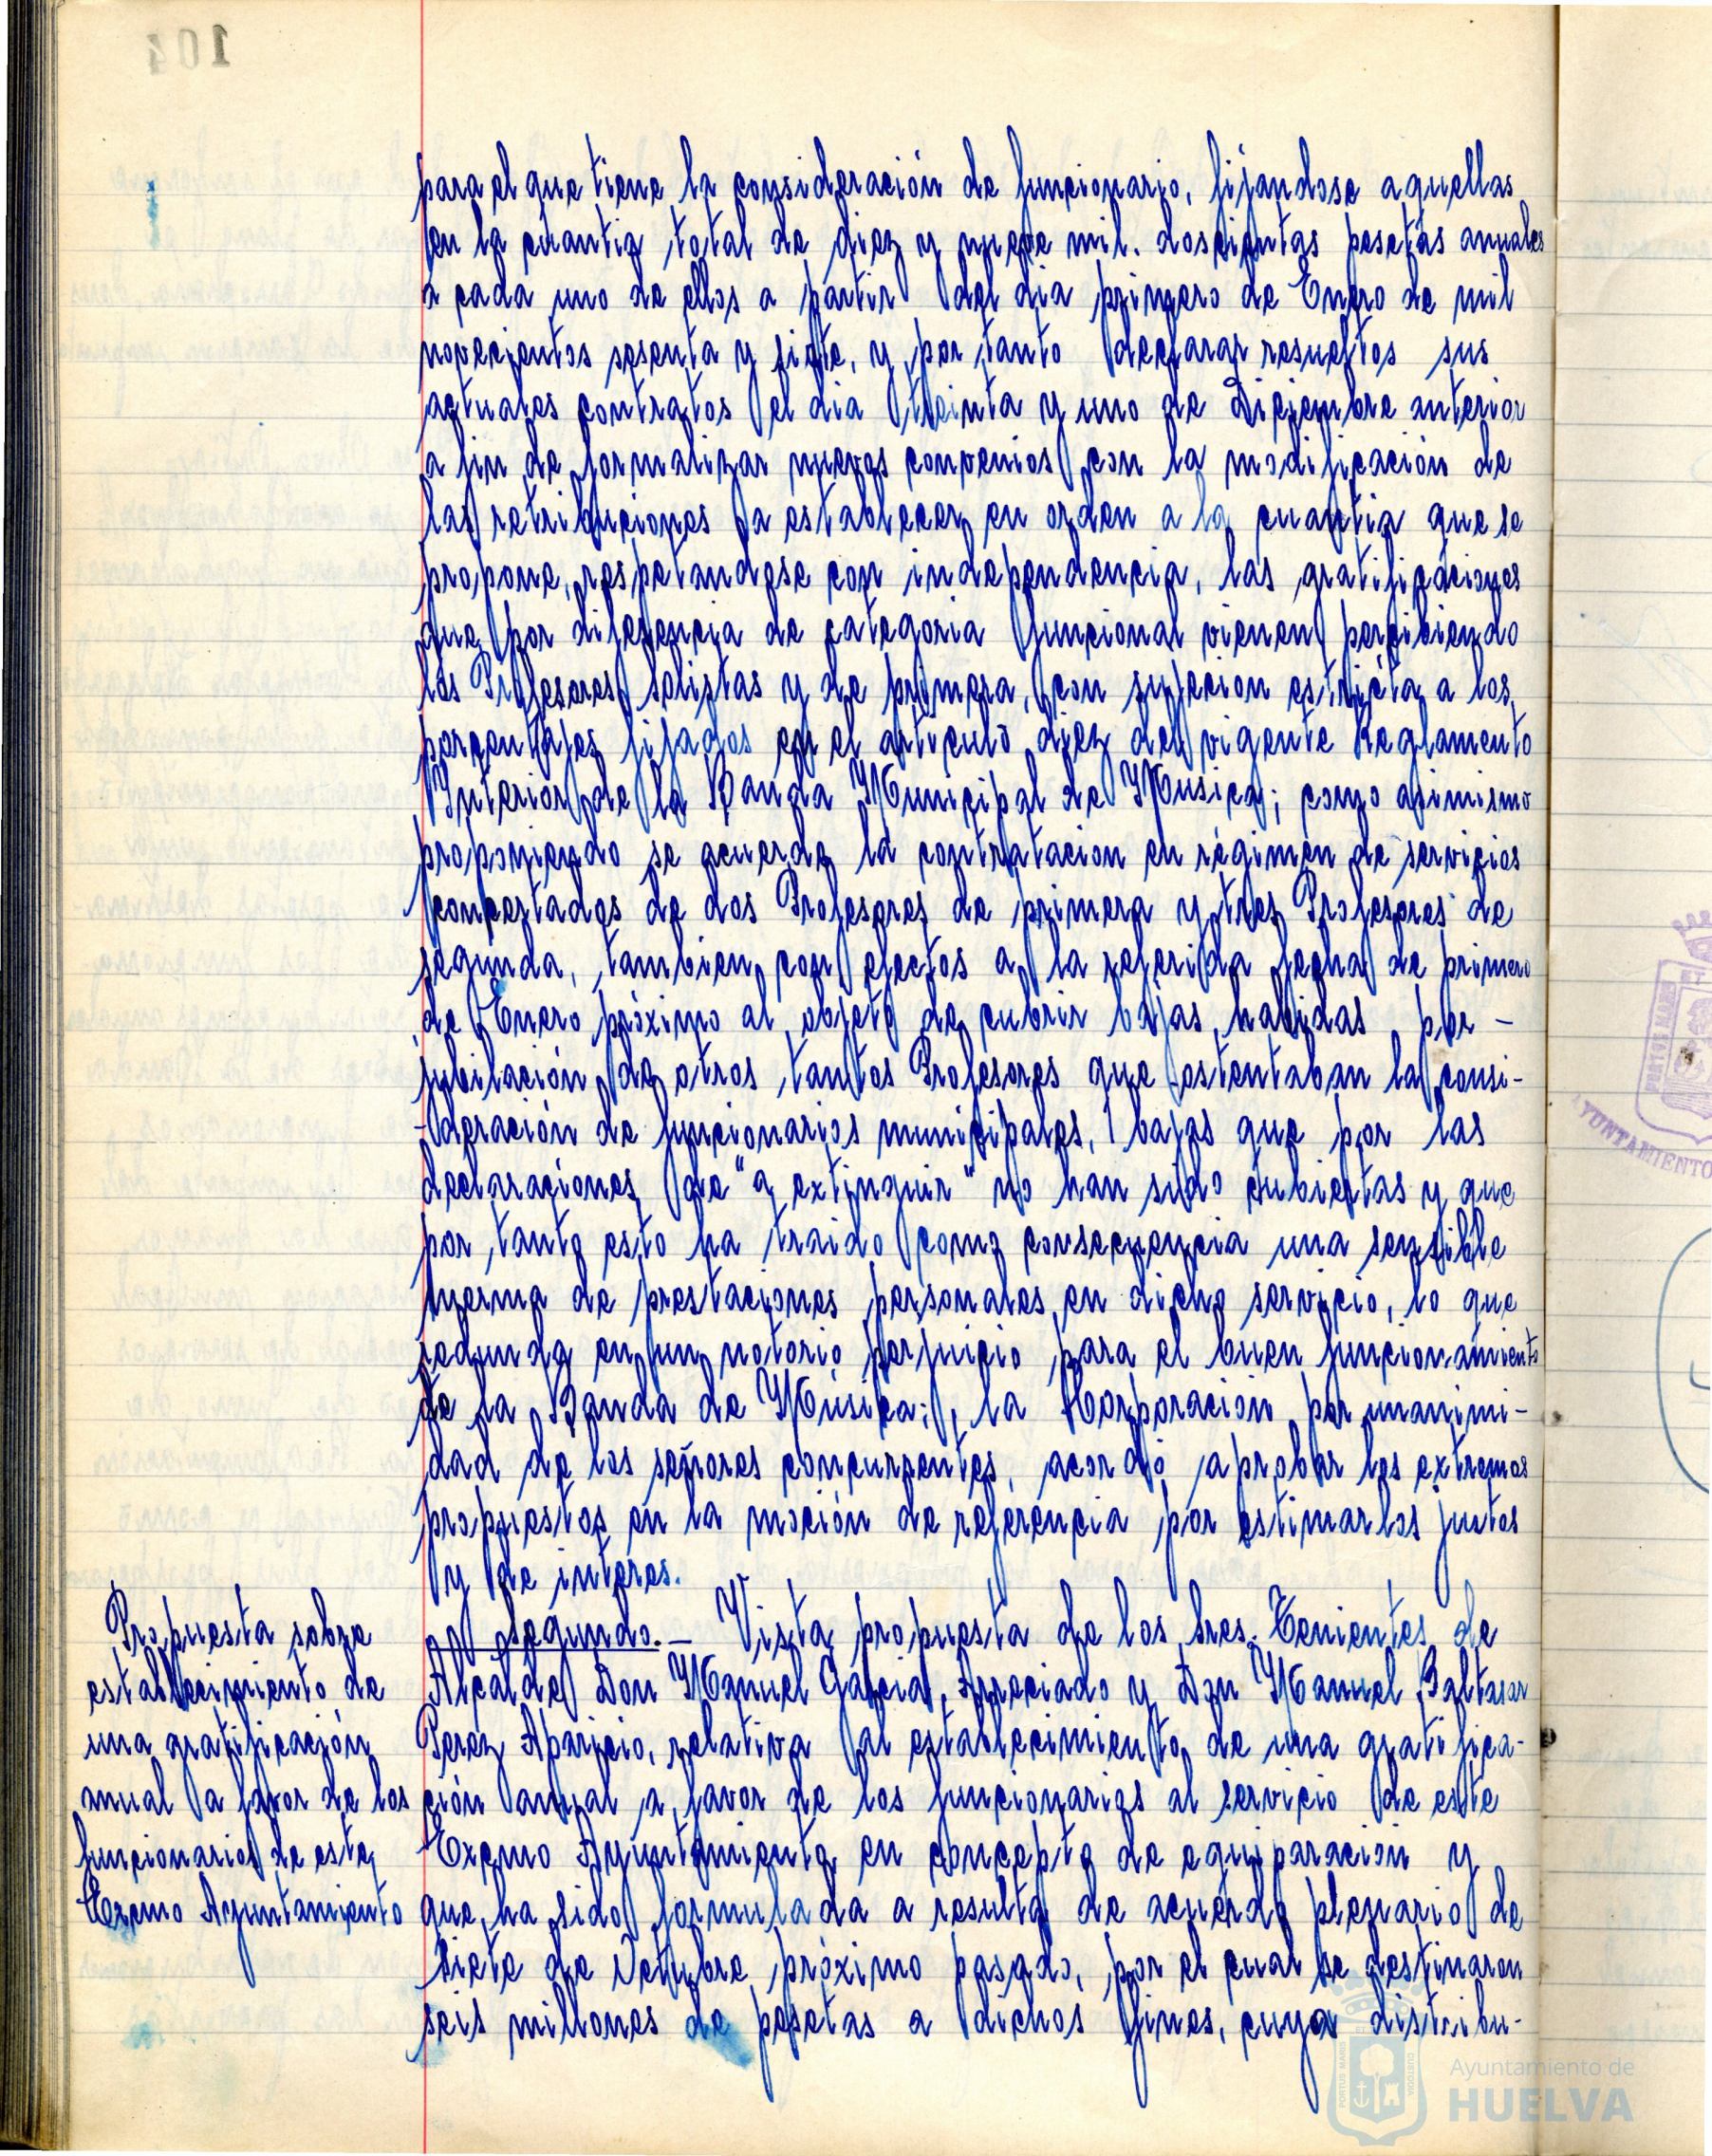 104
para el que tiene la consideración de funcionario, fijandose aquellas
en la cuantia total de diez y nueve mil doscientas pesetas anuales
a cada uno de ellos a partir del dia primero de Enero de mil
novecientos sesenta y siete, y por tanto declarar resueltos sus
actuales contratos el dia treinta y uno de Diciembre anterior
a fin de formalizar nuevos convenios con la modificación de
las retribuciones a establecer en orden a la cuantia que se
propone, respetandose con independencia, las gratificaciones
que por diferencia de categoria funcional vienen percibiendo
los Profesores solistas y de primera, con sujecion estricta a los
porcentajes fijados en el articulo diez del vigente Reglamento
Interior de la Banda Municipal de Musica; como asimismo
proponiendo se acuerde la contratacion en régimen de servicios
concertados de dos Profesores de primera y tres Profesores de
segunda, tambien con efectos a la referida fecha de primero
de Enero próximo al objeto de cubrir bajas habidas por -
jubilación de otros tantos Profesores que ostentaban la consi-
deración de funcionarios municipales, bajas que por las
declaraciones de "a extinguir" no han sido cubiertas y que
por tanto esto ha traido como consecuencia una sensible
merma de prestaciones personales en dicho servicio, lo que
redunda en un notorio perjuicio para el buen funcionamiento
de la Banda de Música; la Corporación por unanimi-
dad de los señores concurrentes, acordó aprobar los extremos
propuestos en la moción de referencia por estimarlos justos
y de interes.
Propuesta sobre
establecimiento de
una gratificación
anual a favor de los
funcionarios de este
Excmo Ayuntamiento
Segundo.- Vista propuesta de los Sres. Tenientes de
Alcalde Don Manuel Garcia Apreciado y Don Manuel Baltasar
Perez Aparicio, relativa al establecimiento de una gratifica-
ción anual a favor de los funcionarios al servicio de este
Excmo Ayuntamiento en concepto de equiparacion y
que ha sido formulada a resulta de acuerdo plenario de
siete de Octubre próximo pasado, por el cual se destinaron
seis millones de pesetas a dichos fines, cuya distribu-
PORTUS MARIS
AYUNTAMIENTO
Ayuntamiento de
HUELVA